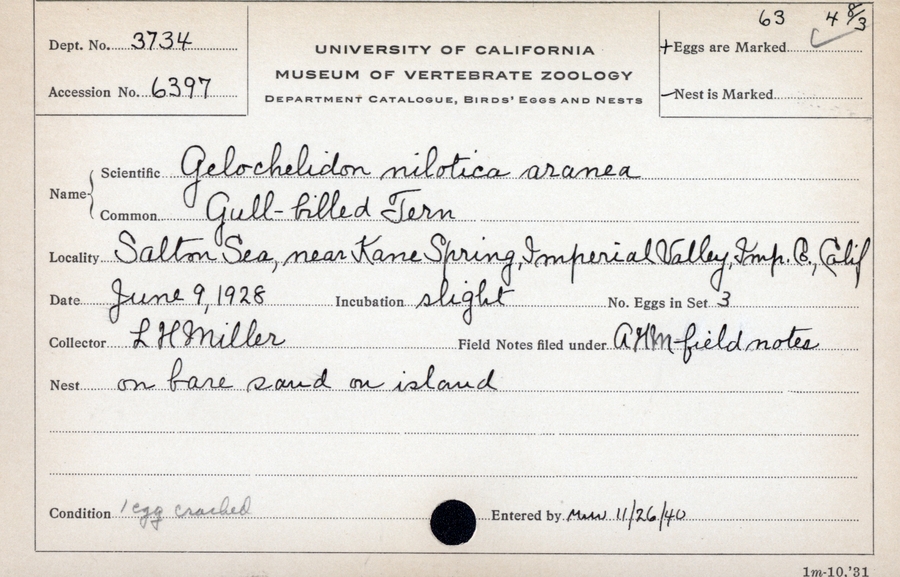 63 4 8/3
Dept. No. 3734
UNIVERSITY OF CALIFORNIA
+Eggs are Marked
MUSEUM OF VERTEBRATE ZOOLOGY
Accession No. 6397
DEPARTMENT CATALOGUE, BIRDS' EGGS AND NESTS
—Nest is Marked
Name
Scientific Gelochelidon nilotica aranea
Common Gull-billed Tern
Locality Salton Sea, near Kane Spring, Imperial Valley, Imp. C., Calif
Date June 9, 1928 Incubation slight No. Eggs in Set 3
Collector L H Miller Field Notes filed under AHM-field notes
Nest on bare sand on island
Condition 1 egg cracked Entered by 11/26/40
1m-10,'31